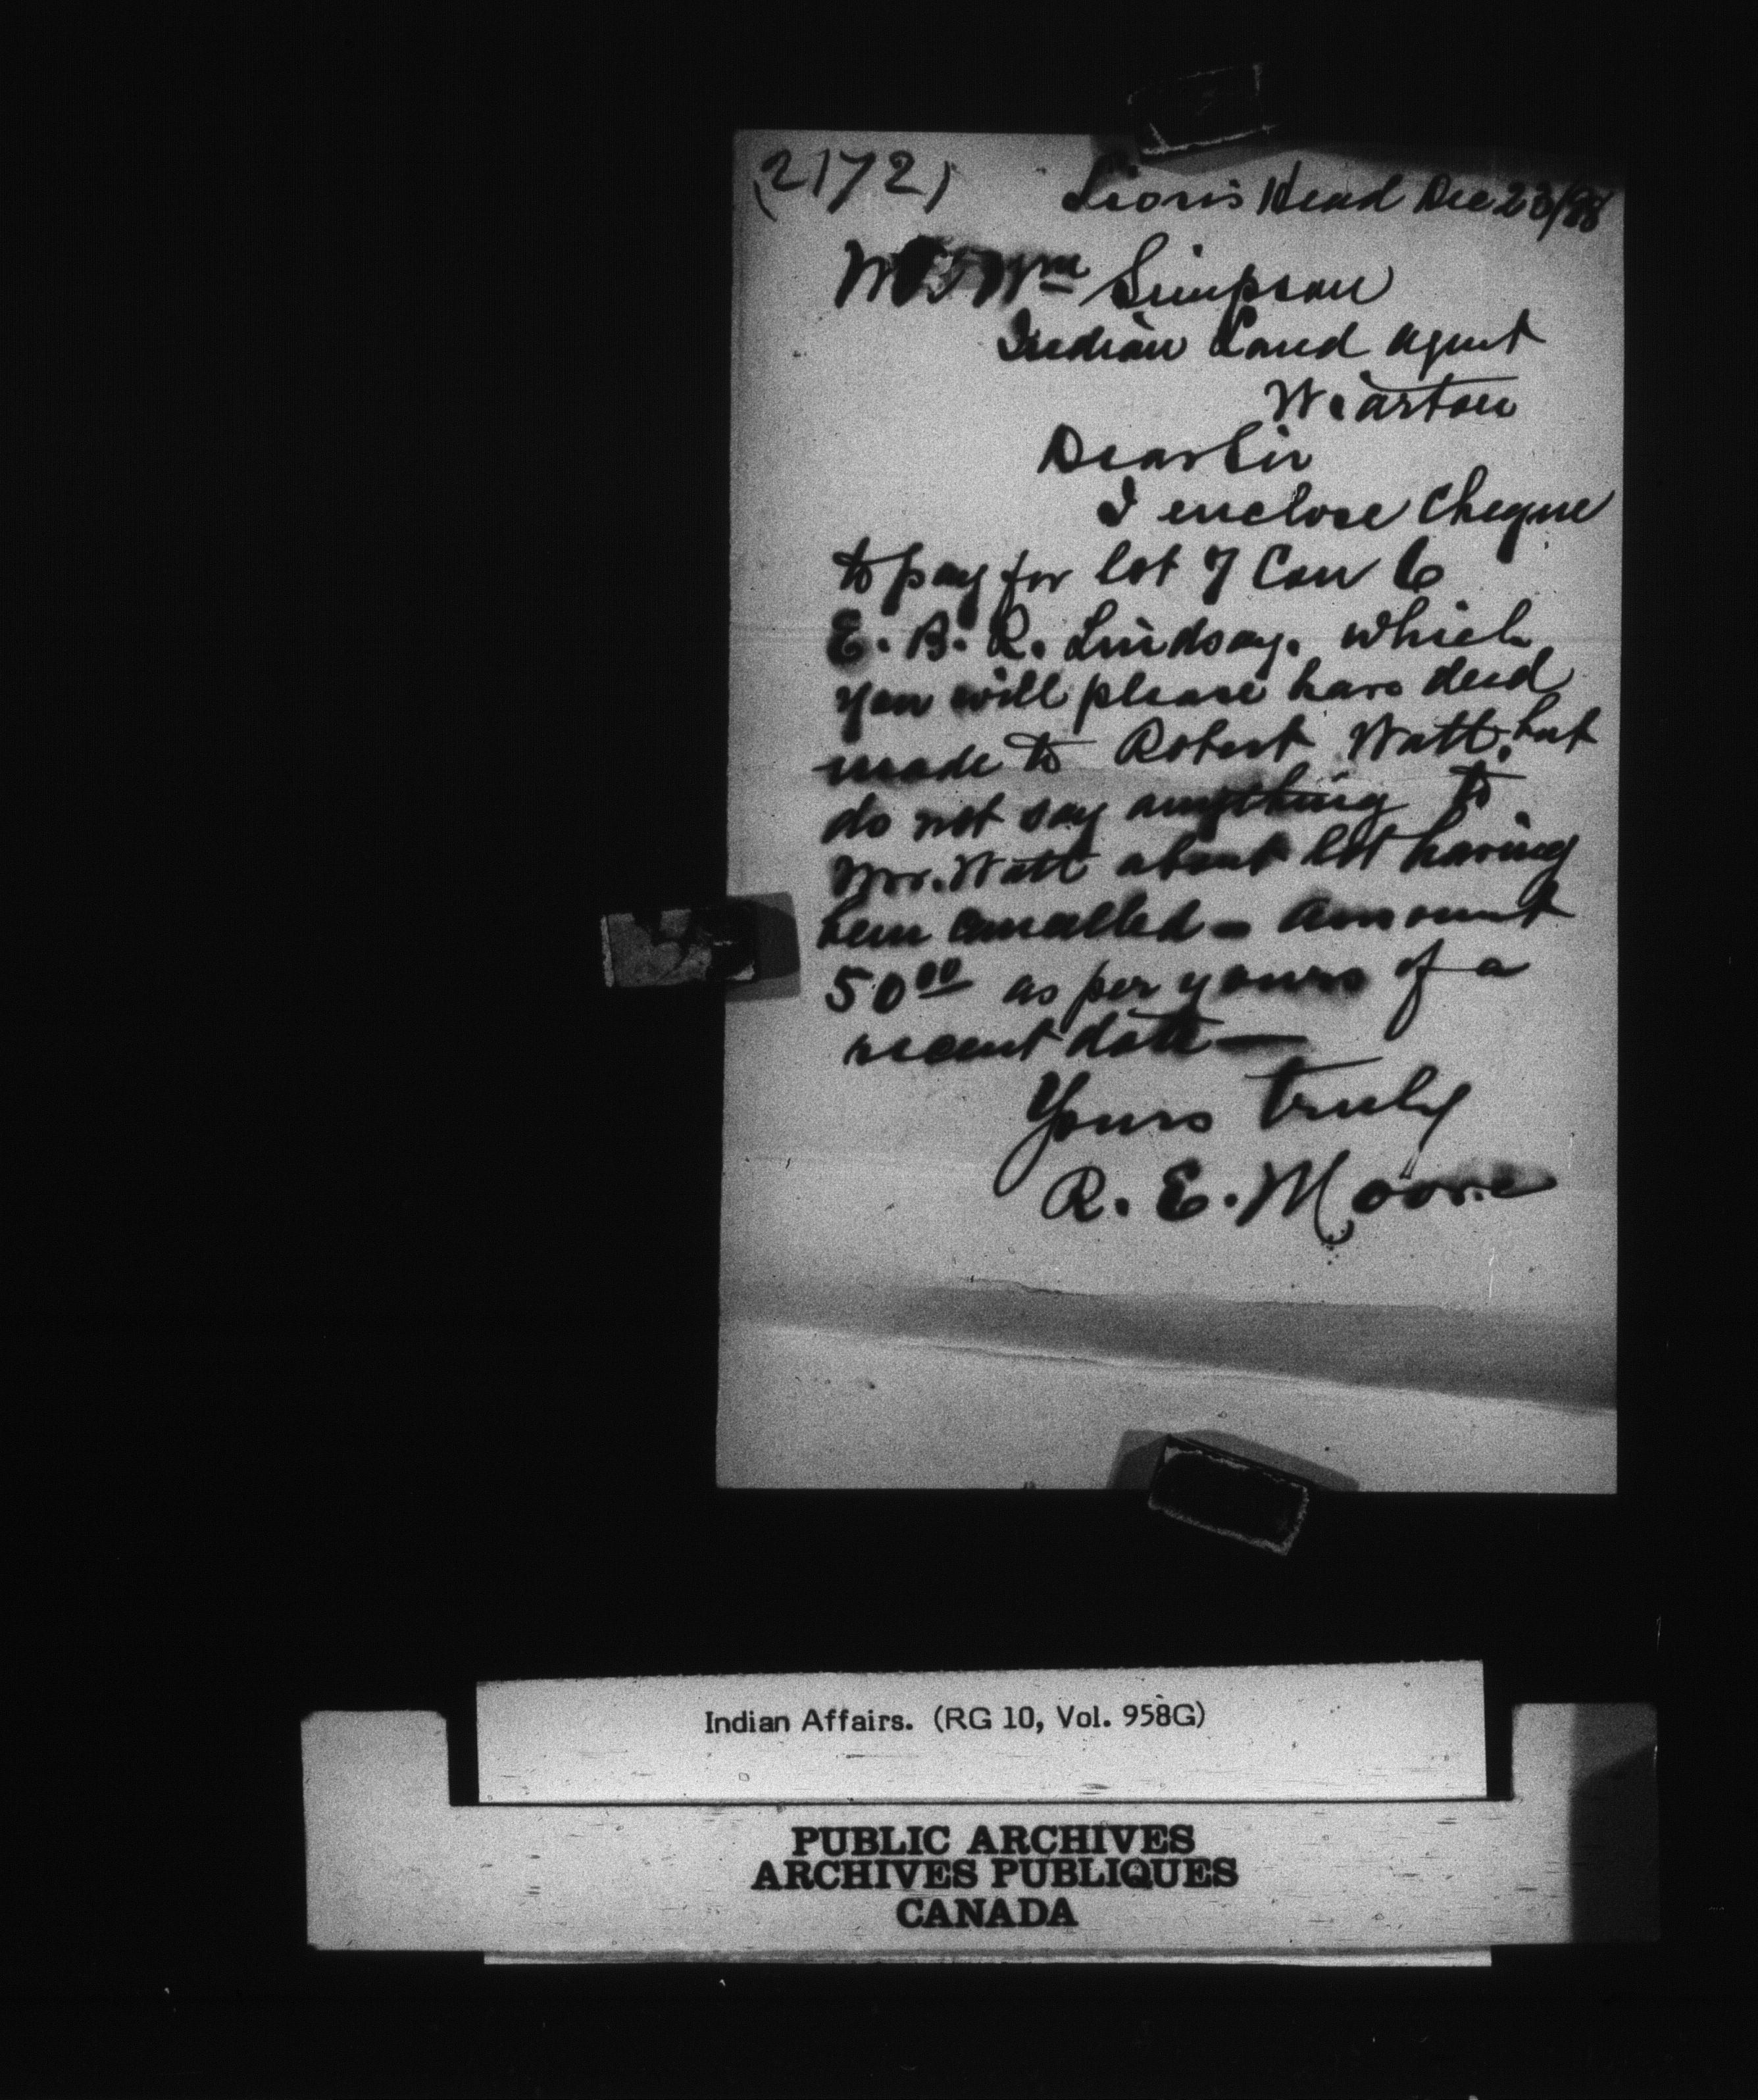 (2172)
Lion's Head Dec 23/98
Wm Simpson
Indian Land Agent
Wiarton
Dear Sir
I enclose Cheque
to pay for lot 7 Con 6
E. B. R. Lindsay. which
you will please have deed
made to Robert Watt, but
do not say anything to
Mr. Watt about lot having
been cancelled - Amount
50 00 as per yours of a
recent date —
Yours truly
R. E. Moore
Indian Affairs. (RG 10, Vol. 958G)
PUBLIC ARCHIVES
ARCHIVES PUBLIQUES
CANADA